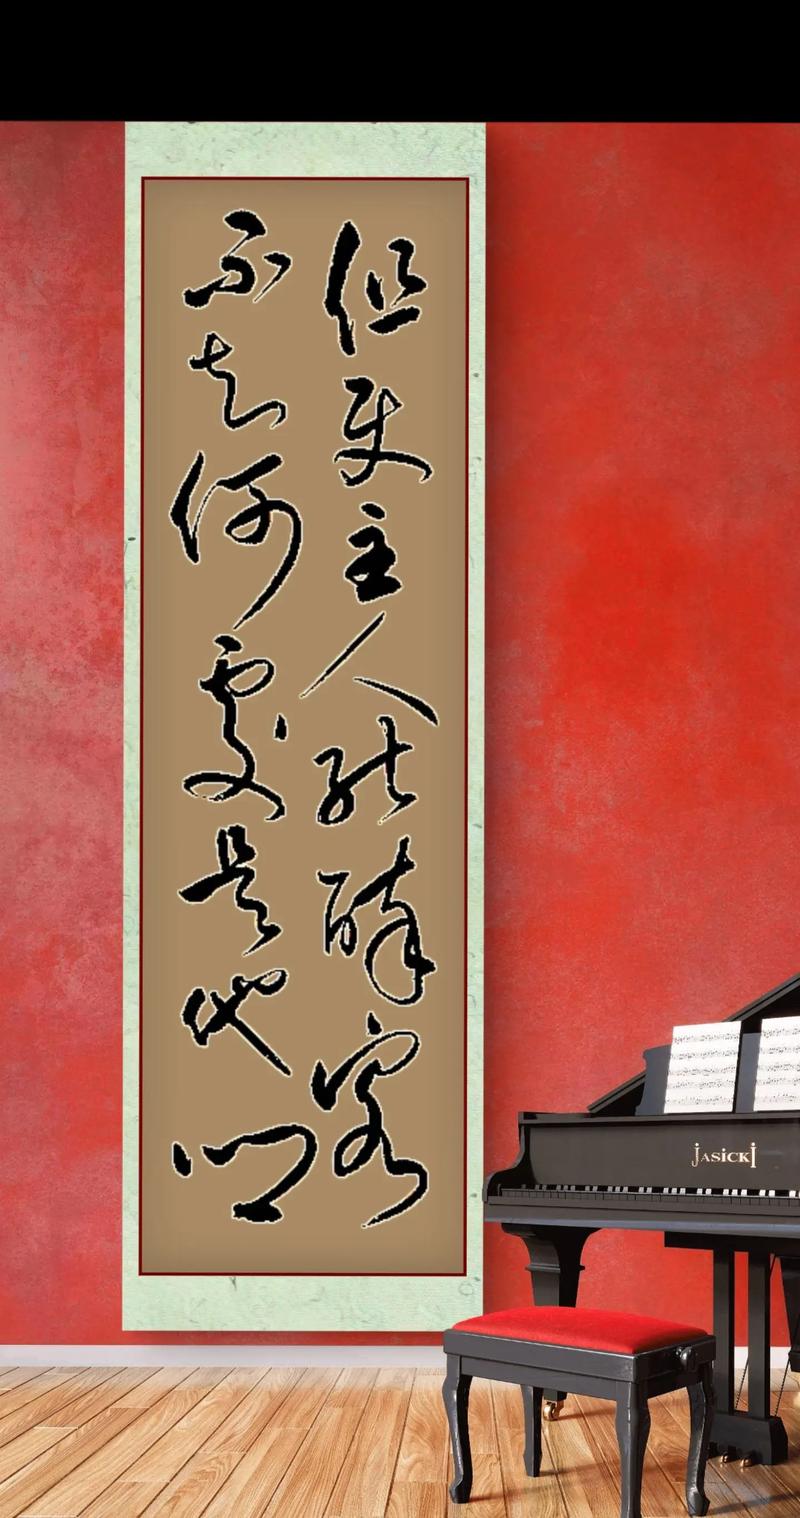 但使主人能醉客
不知何处是他乡
JASICKI